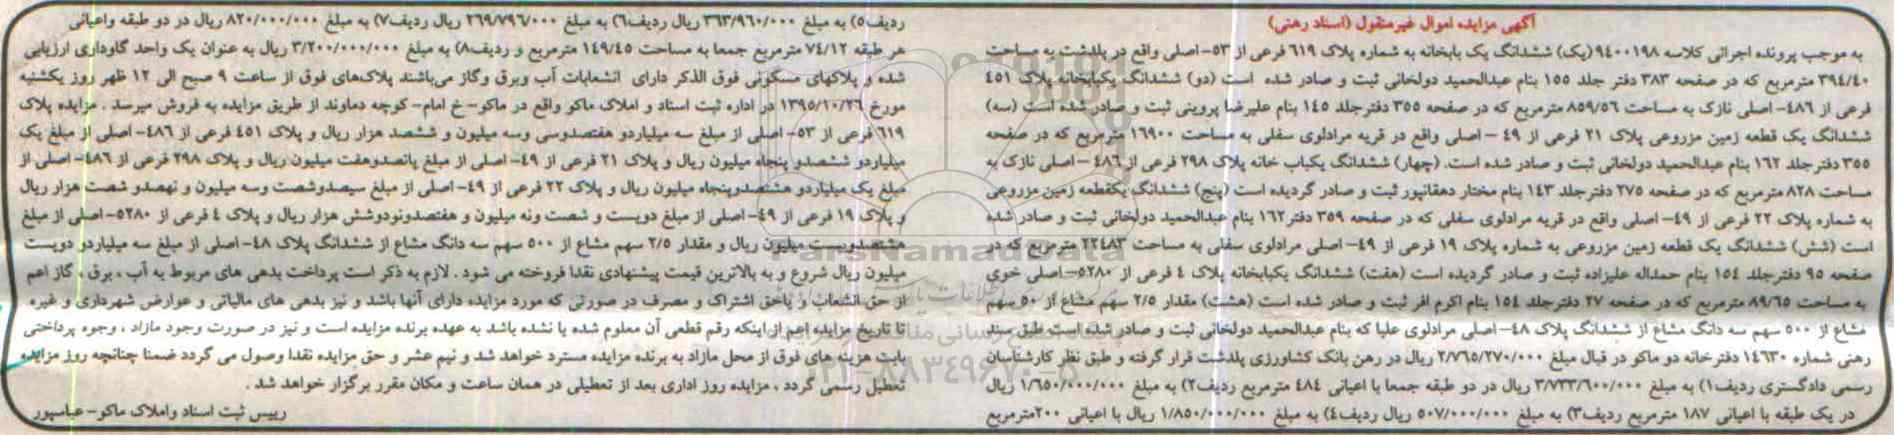 آگهی مزایده اموال غیرمنقول (اسناد رهنی)
به موجب پرونده اجرائی کلاسه ۹۴۰۰۱۹۸ (یک) ششدانگ یک بابخانه به شماره پلاک ۶۱۹ فرعی از ۵۳- اصلی واقع در پلدشت به مساحت
۳۹۴/۴۰ مترمربع که در صفحه ۳۸۳ دفتر جلد ۱۵۵ بنام عبدالحمید دولخانی ثبت و صادر شده است (دو) ششدانگ یکبابخانه پلاک ۴۵۱
فرعی از ۴۸۶- اصلی نازک به مساحت ۸۵۹/۵۶ مترمربع که در صفحه ۳۵۵ دفترجلد ۱۴۵ بنام علیرضا پروینی ثبت و صادر شده است (سه)
ششدانگ یک قطعه زمین مزروعی پلاک ۲۱ فرعی از ۴۹ – اصلی واقع در قریه مرادلوی سفلی به مساحت ۱۶۹۰۰ مترمربع که در صفحه
۳۵۵ دفترجلد ۱۶۲ بنام عبدالحمید دولخانی ثبت و صادر شده است. (چهار) ششدانگ یکباب خانه پلاک ۲۹۸ فرعی از ۴۸۶ – اصلی نازک به
مساحت ۸۲۸ مترمربع که در صفحه ۲۷۵ دفترجلد ۱۴۳ بنام مختار دهقانپور ثبت و صادر گردیده است (پنج) ششدانگ یکقطعه زمین مزروعی
به شماره پلاک ۲۲ فرعی از ۴۹- اصلی واقع در قریه مرادلوی سفلی که در صفحه ۳۵۹ دفتر ۱۶۲ بنام عبدالحمید دولخانی ثبت و صادر شده
است (شش) ششدانگ یک قطعه زمین مزروعی به شماره پلاک ۱۹ فرعی از ۴۹- اصلی مرادلوی سفلی به مساحت ۲۲۴۸۳ مترمربع که در
صفحه ۹۵ دفترجلد ۱۵۴ بنام حمداله علیزاده ثبت و صادر گردیده است (هفت) ششدانگ یکبابخانه پلاک ۴ فرعی از ۵۲۸۰- اصلی خوی
به مساحت ۸۹/۶۵ مترمربع که در صفحه ۲۷ دفترجلد ۱۵۴ بنام اکرم افر ثبت و صادر شده است (هشت) مقدار ۲/۵ سهم مشاع از ۵۰ سهم
مشاع از ۵۰۰ سهم سه دانگ مشاع از ششدانگ پلاک ۴۸- اصلی مرادلوی علیا که بنام عبدالحمید دولخانی ثبت و صادر شده است طبق سند
رهنی شماره ۱۴۶۳۰ دفترخانه دو ماکو در قبال مبلغ ۲/۷۶۵/۲۷۰/۰۰۰ ریال در رهن بانک کشاورزی پلدشت قرار گرفته و طبق نظر کارشناسان
رسمی دادگستری ردیف۱) به مبلغ ۳/۷۳۳/۶۰۰/۰۰۰ ریال در دو طبقه جمعا با اعیانی ۴۸۴ مترمربع ردیف۲) به مبلغ ۱/۶۵۰/۰۰۰/۰۰۰ ریال
در یک طبقه با اعیانی ۱۸۷ مترمربع ردیف۳) به مبلغ ۵۰۷/۰۰۰/۰۰۰ ریال ردیف۴) به مبلغ ۱/۸۵۰/۰۰۰/۰۰۰ ریال با اعیانی ۲۰۰مترمربع
ردیف۵) به مبلغ ۳۶۳/۹۶۰/۰۰۰ ریال ردیف۶) به مبلغ ۲۶۹/۷۹۶/۰۰۰ ریال ردیف۷) به مبلغ ۸۲۰/۰۰۰/۰۰۰ ریال در دو طبقه واعیانی
هر طبقه ۷۴/۱۲ مترمربع جمعا به مساحت ۱۴۹/۴۵ مترمربع و ردیف۸) به مبلغ ۳/۲۰۰/۰۰۰/۰۰۰ ریال به عنوان یک واحد گاوداری ارزیابی
شده و پلاکهای مسکونی فوق الذکر دارای انشعابات آب وبرق وگاز می‌باشند پلاک‌های فوق از ساعت ۹ صبح الی ۱۲ ظهر روز یکشنبه
مورخ ۱۳۹۵/۱۰/۲۶ در اداره ثبت اسناد و املاک ماکو واقع در ماکو- خ امام- کوچه دماوند از طریق مزایده به فروش میرسد . مزایده پلاک
۶۱۹ فرعی از ۵۳- اصلی از مبلغ سه میلیاردو هفتصدوسی وسه میلیون و ششصد هزار ریال و پلاک ۴۵۱ فرعی از ۴۸۶- اصلی از مبلغ یک
میلیاردو ششصدو پنجاه میلیون ریال و پلاک ۲۱ فرعی از ۴۹- اصلی از مبلغ پانصدوهفت میلیون ریال و پلاک ۲۹۸ فرعی از ۴۸۶- اصلی از
مبلغ یک میلیاردو هشتصدوپنجاه میلیون ریال و پلاک ۲۲ فرعی از ۴۹- اصلی از مبلغ سیصدوشصت وسه میلیون و نهصدو شصت هزار ریال
و پلاک ۱۹ فرعی از ۴۹- اصلی از مبلغ دویست و شصت ونه میلیون و هفتصدونودوشش هزار ریال و پلاک ۴ فرعی از ۵۲۸۰- اصلی از مبلغ
هشتصدوبیست میلیون ریال و مقدار ۲/۵ سهم مشاع از ۵۰۰ سهم سه دانگ مشاع از ششدانگ پلاک ۴۸- اصلی از مبلغ سه میلیاردو دویست
میلیون ریال شروع و به بالاترین قیمت پیشنهادی نقدا فروخته می شود . لازم به ذکر است پرداخت بدهی های مربوط به آب ، برق ، گاز اعم
از حق انشعاب و یاحق اشتراک و مصرف در صورتی که مورد مزایده دارای آنها باشد و نیز بدهی های مالیاتی و عوارض شهرداری و غیره
تا تاریخ مزایده اعم ازاینکه رقم قطعی آن معلوم شده یا نشده باشد به عهده برنده مزایده است و نیز در صورت وجود مازاد ، وجوه پرداختی
بابت هزینه های فوق از محل مازاد به برنده مزایده مسترد خواهد شد و نیم عشر و حق مزایده نقدا وصول می گردد ضمنا چنانچه روز مزایده
تعطیل رسمی گردد ، مزایده روز اداری بعد از تعطیلی در همان ساعت و مکان مقرر برگزار خواهد شد .
رییس ثبت اسناد واملاک ماکو- عباسپور
ParsNamadData
۰۲۱-۸۸۳۴۹۶۷۰-۵